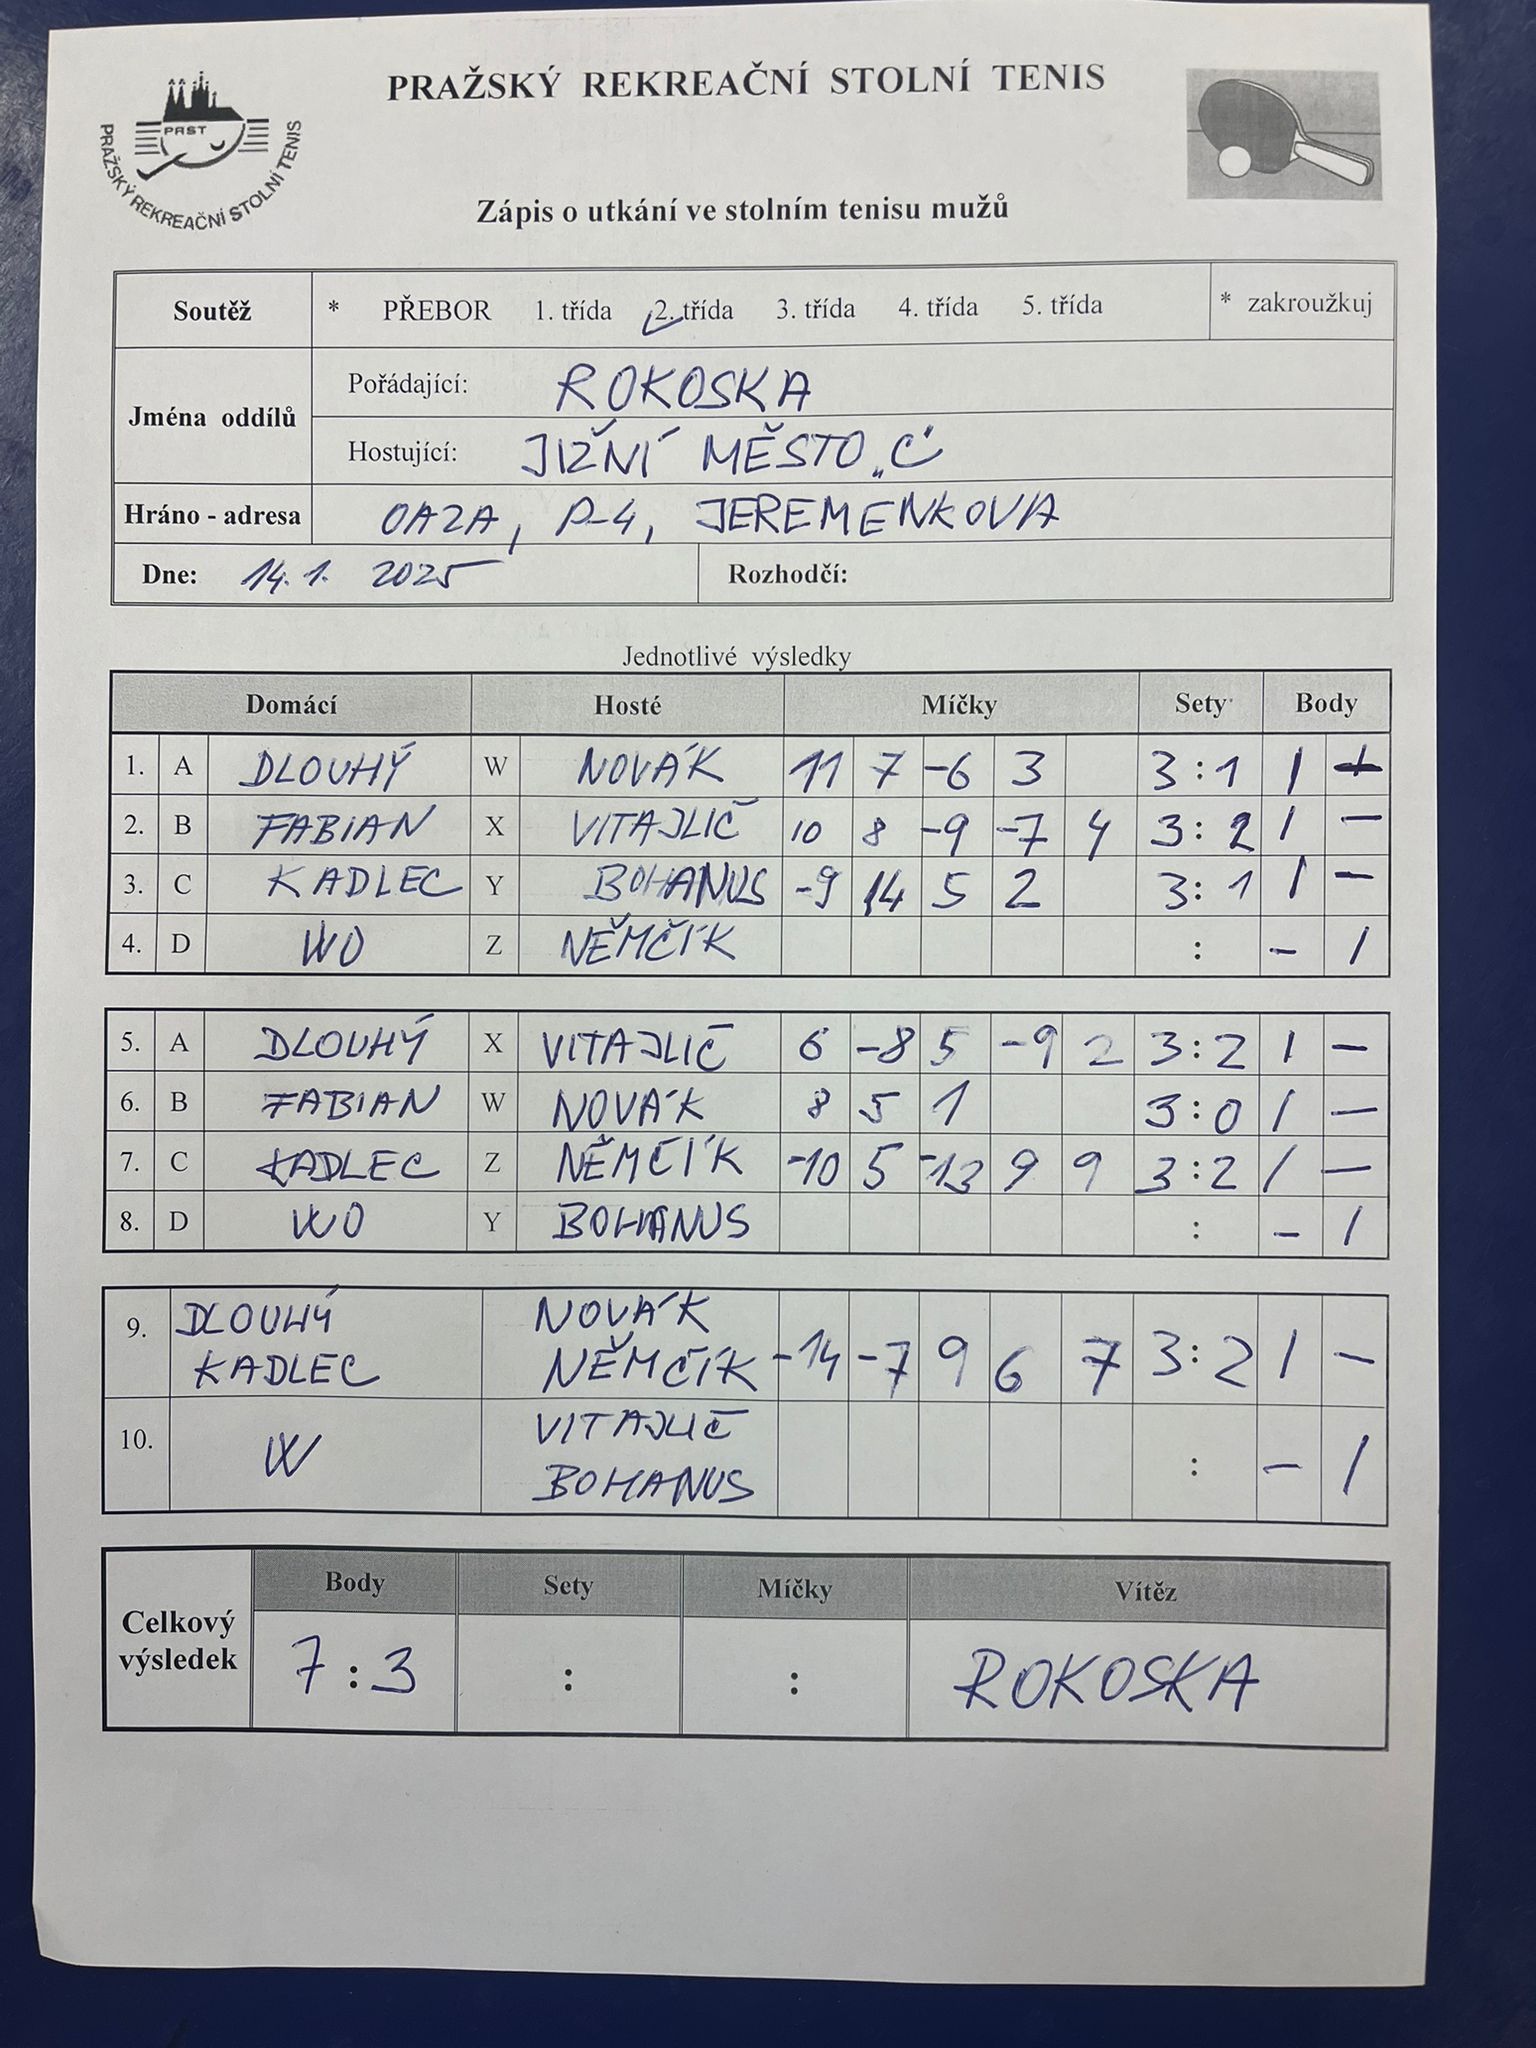 PRAŽSKÝ REKREAČNÍ STOLNÍ TENIS
PRST
PRAŽSKÝ REKREAČNÍ STOLNÍ TENIS
Zápis o utkání ve stolním tenisu mužů
Soutěž * PŘEBOR 1. třída 2. třída 3. třída 4. třída 5. třída * zakroužkuj
Jména oddílů
Pořádající: ROKOSKA
Hostující: JIŽNÍ MĚSTO „C"
Hráno - adresa OAZA, P-4, JEREMENKOVA
Dne: 14.1. 2025 Rozhodčí:
Jednotlivé výsledky
Domácí Hosté Míčky Sety Body
1. A DLOUHÝ W NOVÁK 11 7 -6 3 3:1 1 -
2. B FABIAN X VITAJLIČ 10 8 -9 -7 4 3:2 1 -
3. C KADLEC Y BOHANUS -9 14 5 2 3:1 1 -
4. D WO Z NĚMČÍK : - 1
5. A DLOUHÝ X VITAJLIČ 6 -8 5 -9 2 3:2 1 -
6. B FABIAN W NOVÁK 8 5 1 3:0 1 -
7. C KADLEC Z NĚMČÍK -10 5 -13 9 9 3:2 1 -
8. D WO Y BOHANUS : - 1
9. DLOUHÝ NOVÁK
KADLEC NĚMČÍK -14 -7 9 6 7 3:2 1 -
10. W VITAJLIČ
BOHANUS : - 1
Celkový výsledek
Body Sety Míčky Vítěz
7:3 : : ROKOSKA